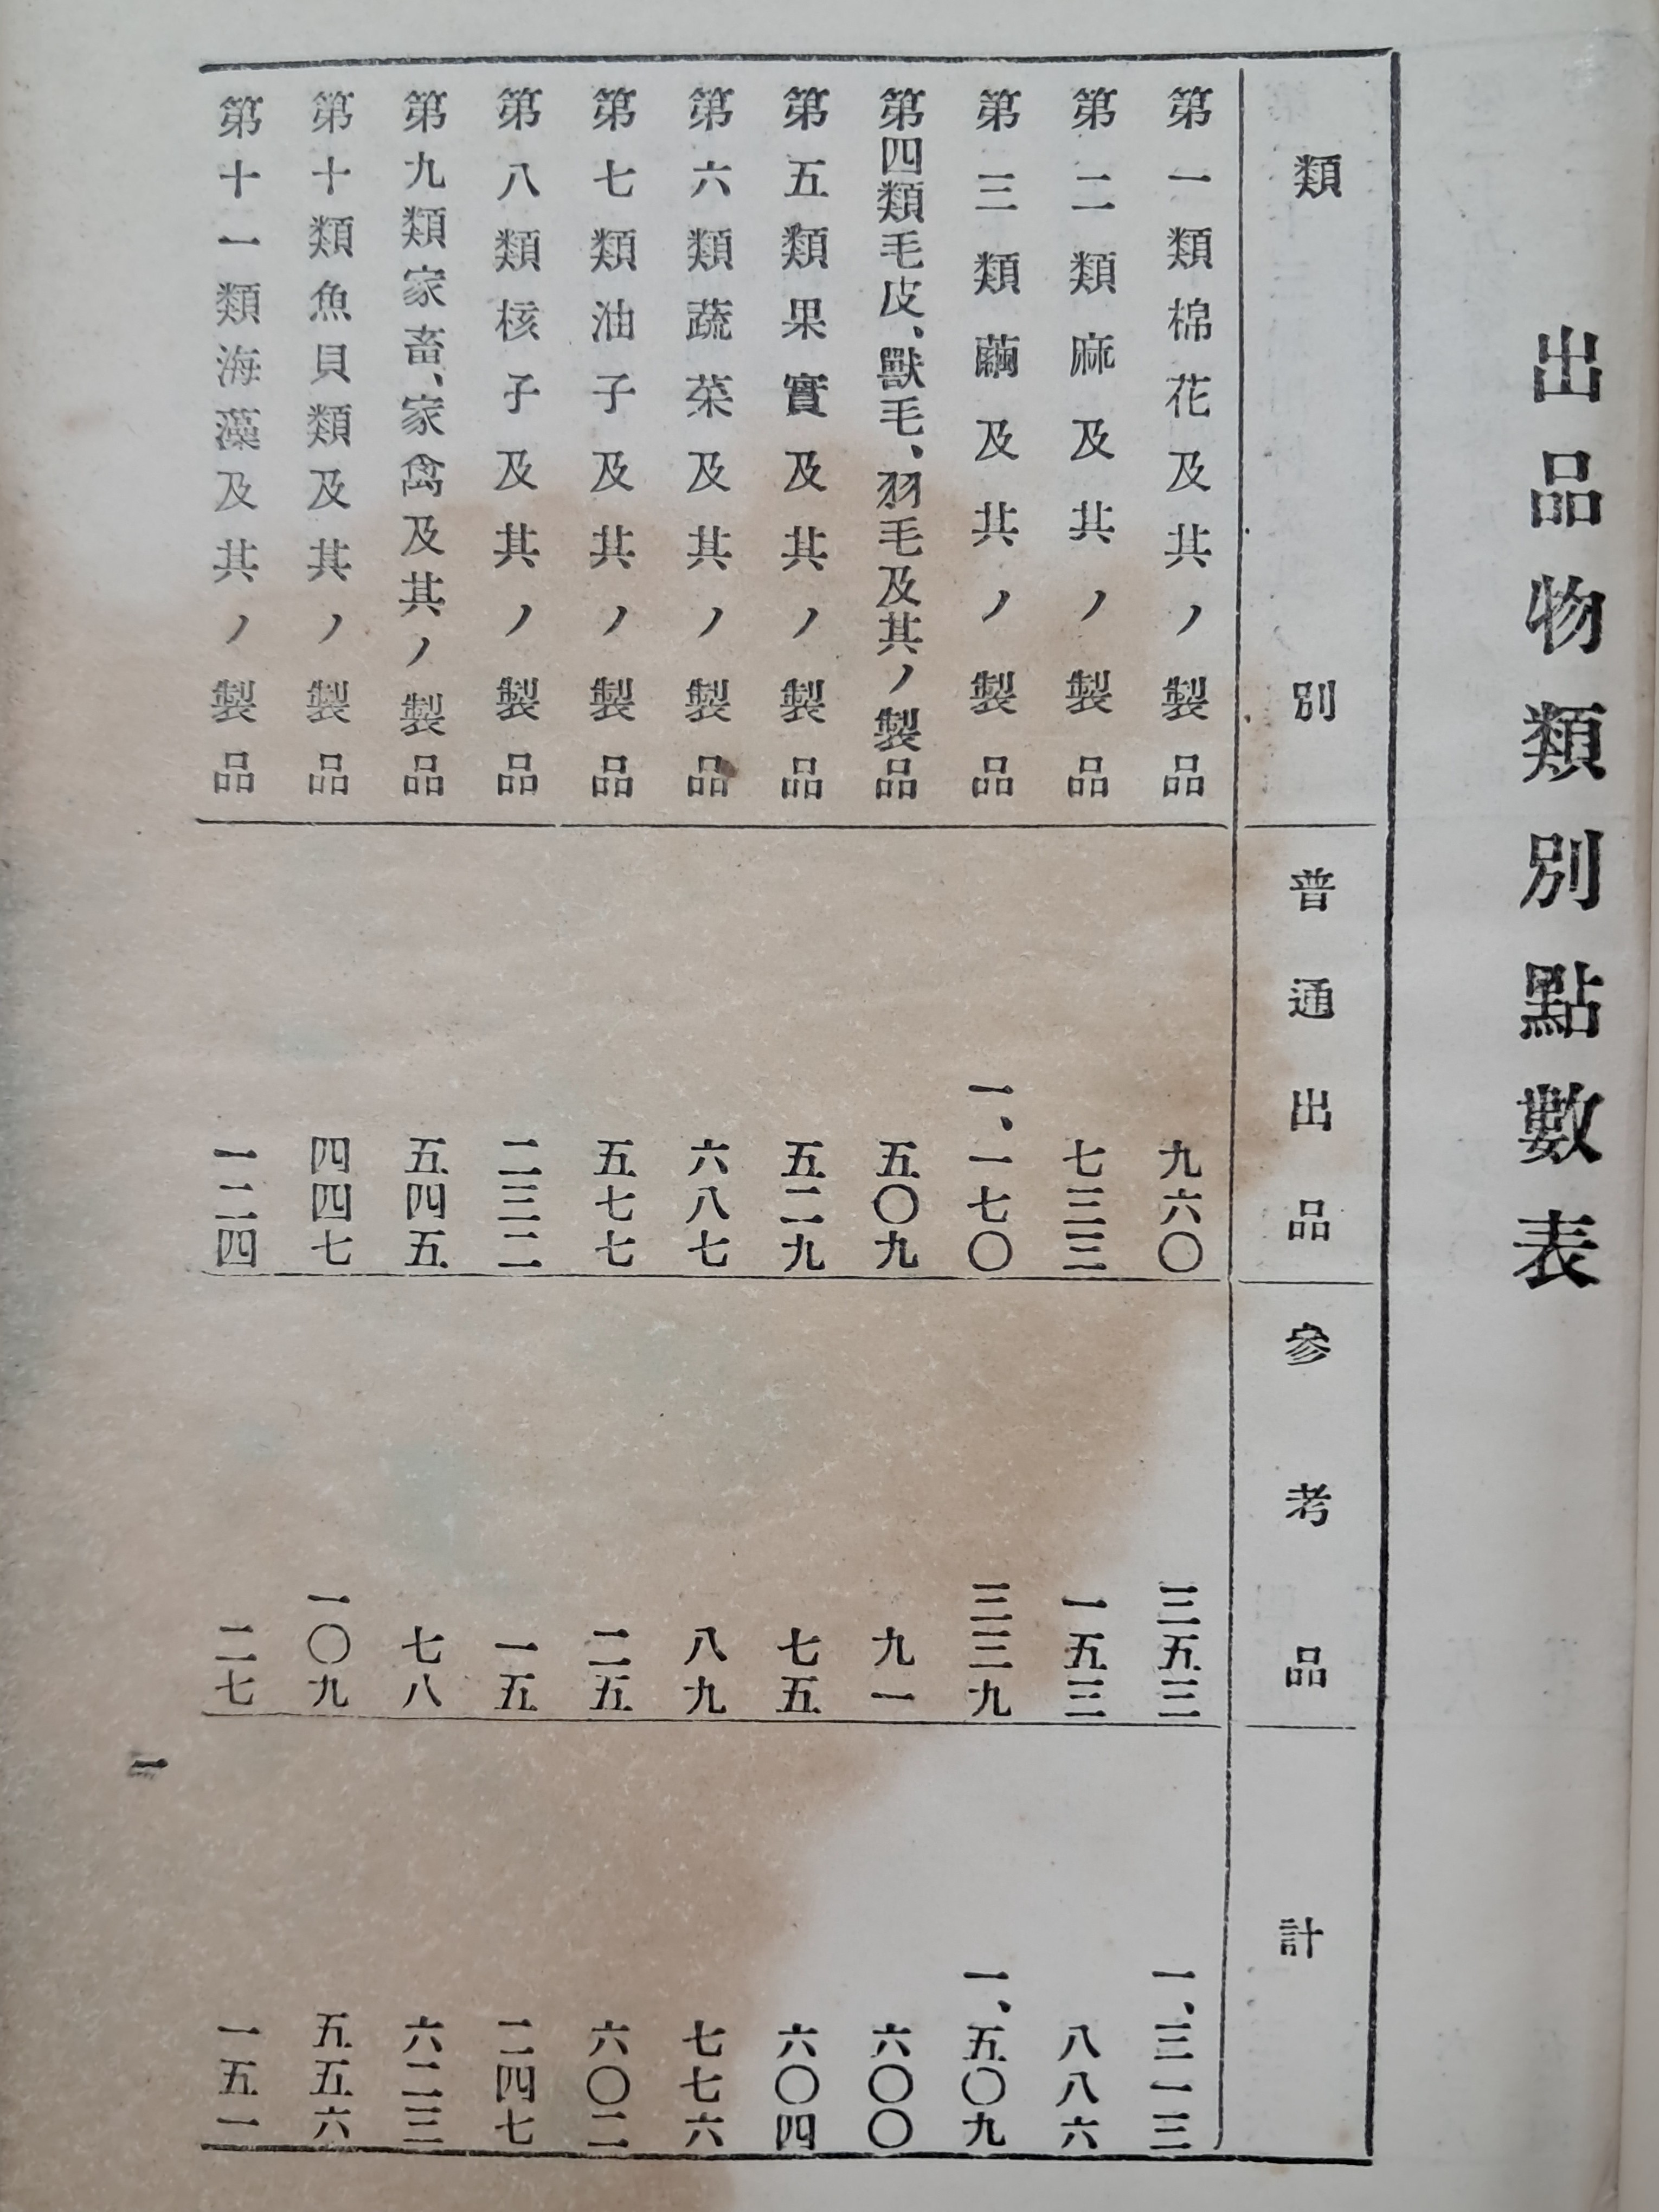 出品物類別點數表
類別 普通出品 參考品 計
第一類棉花及其ノ製品 九六〇 三五三 一、三一三
第二類麻及其ノ製品 七三三 一五三 八八六
第三類繭及其ノ製品 一、一七〇 三三九 一、五〇九
第四類毛皮、獸毛、羽毛及其ノ製品 五〇九 九一 六〇〇
第五類果實及其ノ製品 五二九 七五 六〇四
第六類蔬菜及其ノ製品 六八七 八九 七七六
第七類油子及其ノ製品 五七七 二五 六〇二
第八類核子及其ノ製品 二三二 一五 二四七
第九類家畜、家禽及其ノ製品 五四五 七八 六二三
第十類魚貝類及其ノ製品 四四七 一〇九 五五六
第十一類海藻及其ノ製品 一二四 二七 一五一
一